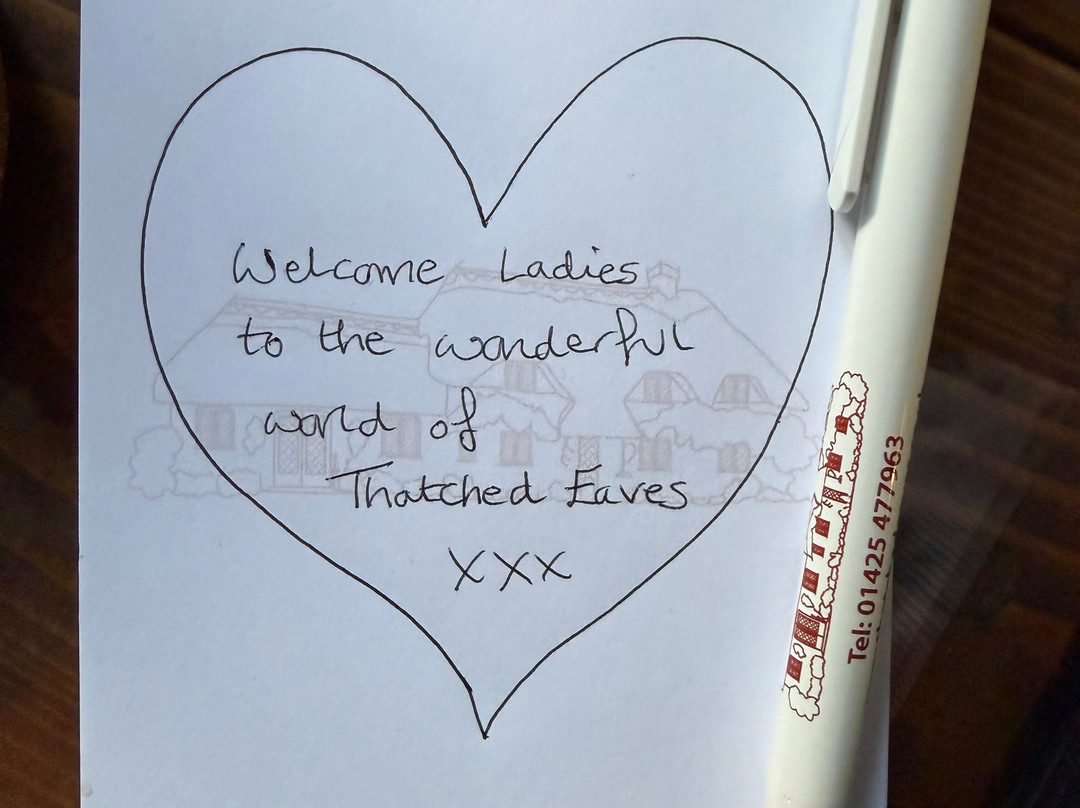 Welcome Ladies
to the wonderful
world of
Thatched Eaves
XXX
Tel: 01425 477963